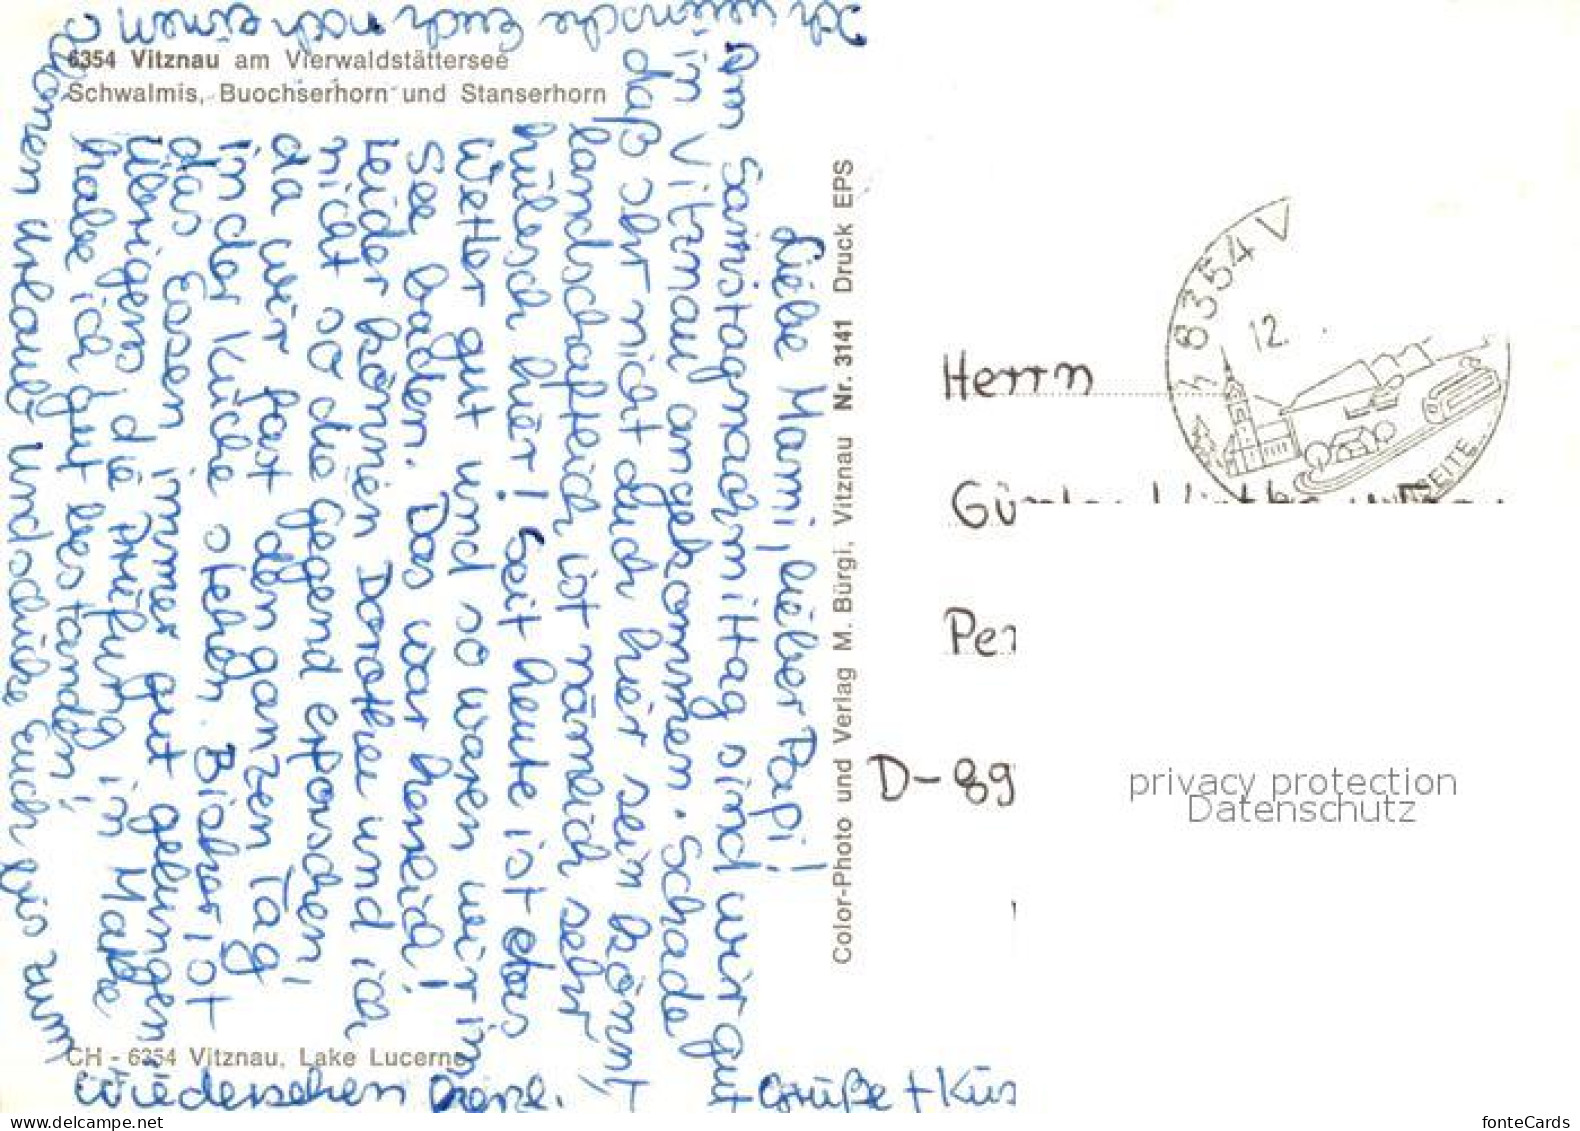 6354 Vitznau am Vierwaldstättersee
Schwalmis, Buochserhorn und Stanserhorn
Liebe Mami, lieber Papi!
Am Samstagnachmittag sind wir gut
in Vitznau angekommen. Schade
daß ihr nicht auch hier sein könnt,
landschaftlich ist nämlich sehr
hübsch hier! Seit heute ist das
Wetter gut und so waren wir im
See baden. Das war herrlich!
Leider können Dorothee und ich
nicht so die Gegend erforschen,
da wir fast den ganzen Tag
in der Küche stehen. Bisher ist
das Essen immer gut gelungen.
Übrigens, die Prüfung in Mathe
habe ich gut bestanden!
Ich wünsche Euch noch einen
schönen Urlaub und
Euch bis zum
Wiedersehen
Grüße + Küs
CH - 6354 Vitznau, Lake Lucerne
Color-Photo und Verlag M. Bürgi, Vitznau Nr. 3141 Druck EPS
6354 V
12.
Herrn
Gü
Per
D-89
privacy protection
Datenschutz
www.delcampe.net
fonteCards